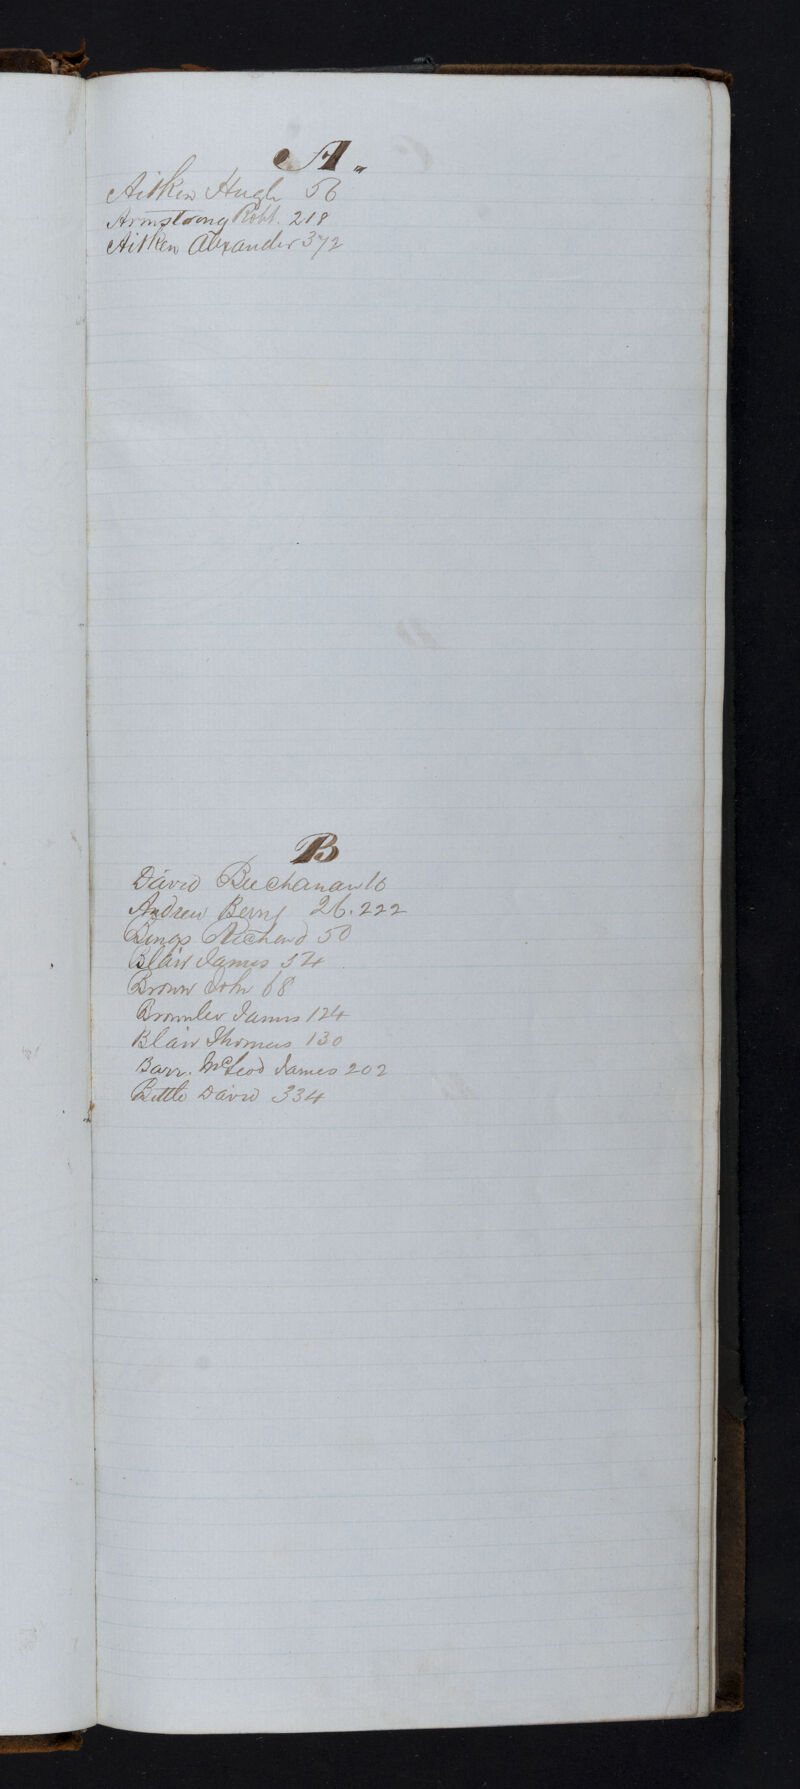 A.
Aitken Hugh 56
Armstrong Robt. 218
Aitken Alexander 372
B
David Buchanan 16
Andrew 26. 222
Richard 50
Blair James 54
Brown John 68
Bromler James 124
Blair Thomas 130
Barr. McLeod James 202
Bettle David 334